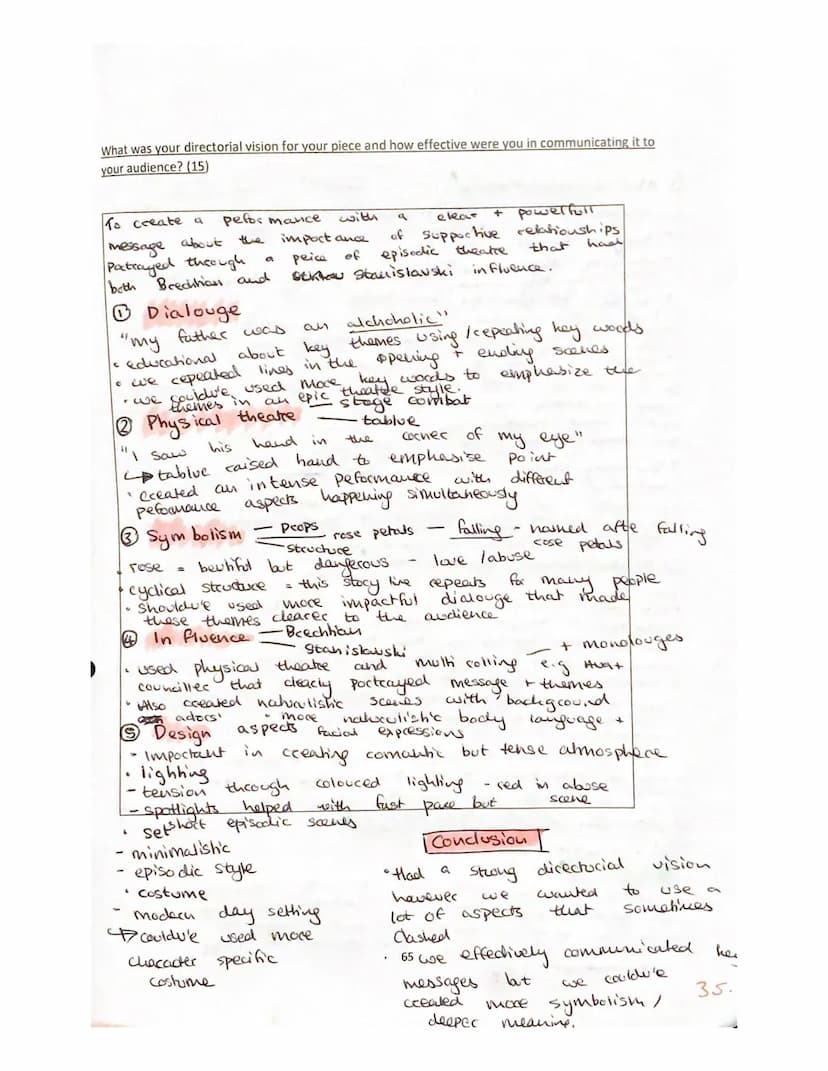 What was your directorial vision for your piece and how effective were you in communicating it to
your audience? (15)
To create a peformance with a clear + powerfull
message about the importance of supportive relationships
Portrayed through a peice of episodic theatre that had
both Brechtian and Stanislavski influence.
① Dialouge
"my father was an alchoholic"
• educational about key themes using/repeating key words
• we repeated lines in the opening + ending scenes
• we couldu'e used more key words to emphasize the
themes in an epic theatre style.
② Physical theatre — stage combat
— tablue
"I saw his hand in the corner of my eye"
↳ tablue raised hand to emphasise point
• created an intense peformance with different
peformance aspects happening simultaneously
③ Symbolism — Props rose petals — falling - named afte falling
— Structure rose petals
• rose = beutiful but dangerous - love /abuse
• cyclical structure = this story line repeats for many people
• Shouldu'e used more impactful dialouge that made
these themes clearer to the audience
④ Influence — Brechtian
— Stanislawski — + monolouges
• used physical theatre and multi rolling e.g
counciller that clearly portrayed message + themes
• Also created naturalistic scenes with background
actors' • more naturalistic body language +
⑤ Design aspects facial expressions
- Important in creating romantic but tense atmosphere
• lighting
- tension through coloured lighting - red in abuse
- spotlights helped with fast pace but scene
short episodic scenes
• set
- minimalistic
- episodic style
• costume
- modern day setting
↳ couldu'e used more
character specific
costume
Conclusion
• Had a strong directorial vision
however we wanted to use a
lot of aspects that sometimes
clashed
• 65 we effectively communicated
messages but we couldu'e
created more symbolism /
deeper meaning.
35.